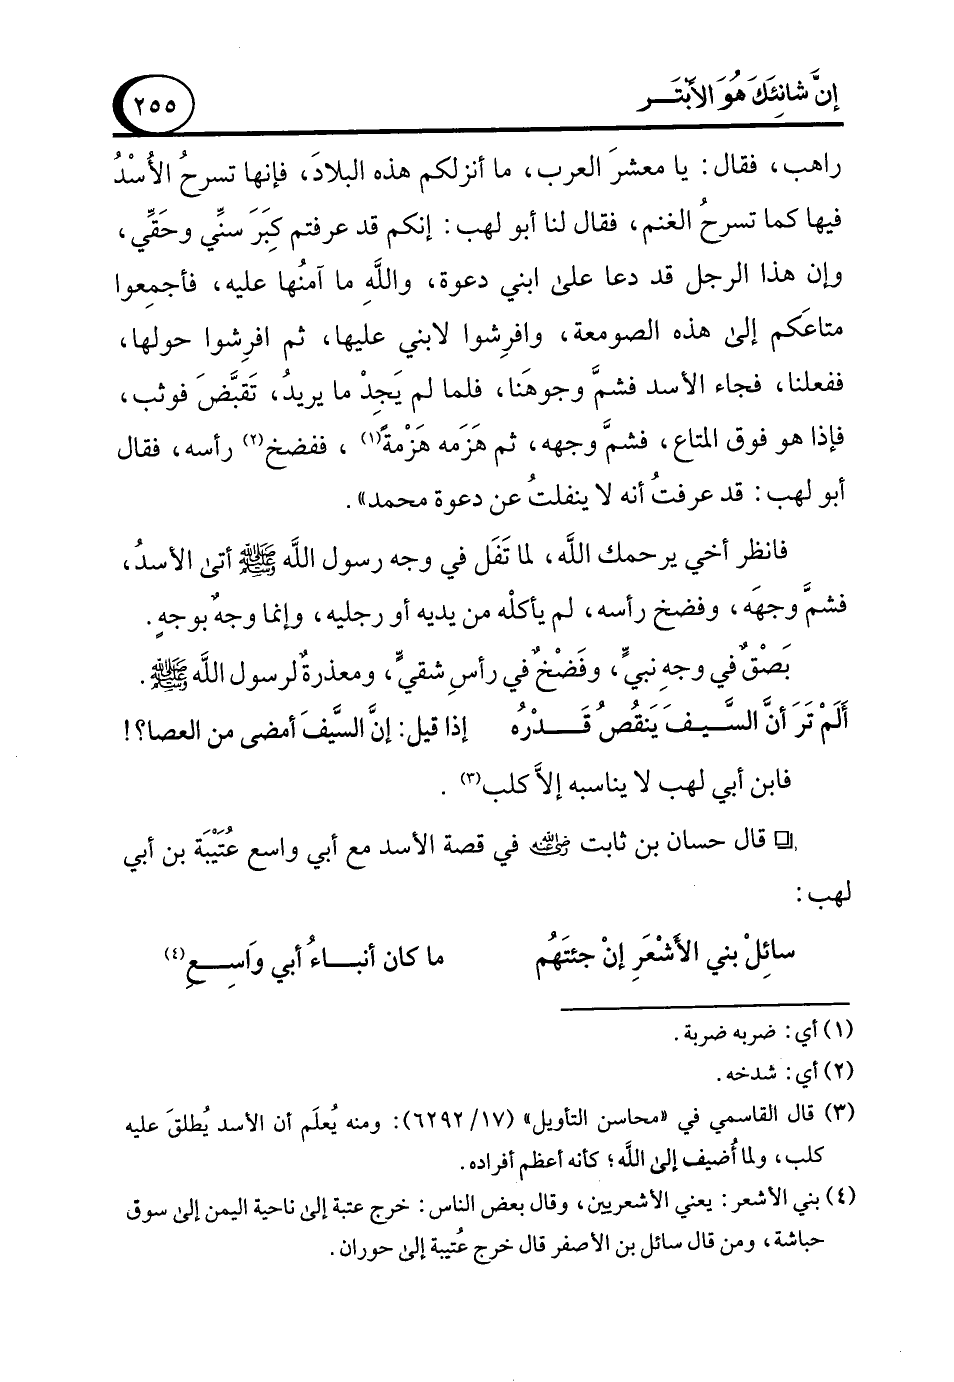 إنَّ شانِئَكَ هُوَ الأبْتَـــر
٢٥٥
راهب، فقال: يا معشرَ العرب، ما أنزلكم هذه البلادَ، فإنها تسرحُ الأُسْدُ
فيها كما تسرحُ الغنم، فقال لنا أبو لهب: إنكم قد عرفتم كِبَرَ سنِّي وحَقِّي،
وإن هذا الرجل قد دعا علىٰ ابني دعوة، واللَّهِ ما آمنُها عليه، فأجمِعوا
متاعَكم إلىٰ هذه الصومعة، وافرِشوا لابني عليها، ثم افرِشوا حولها،
ففعلنا، فجاء الأسد فشمَّ وجوهَنا، فلما لم يَجِدْ ما يريدُ، تَقبَّضَ فوثب،
فإذا هو فوق المتاع، فشمَّ وجهه، ثم هَزَمه هَزْمةً(١)، ففضخ(٢) رأسه، فقال
أبو لهب: قد عرفتُ أنه لا ينفلتُ عن دعوة محمد».
فانظر أخي يرحمك اللَّه، لما تَفَل في وجه رسول اللَّه ﷺ أتىٰ الأسدُ،
فشمَّ وجهَه، وفضخ رأسه، لم يأكلْه من يديه أو رجليه، وإنما وجهٌ بوجهٍ.
بَصْقٌ في وجهِ نبيٍّ، وفَضْخٌ في رأسِ شقيٍّ، ومعذرةٌ لرسول اللَّه ﷺ.
أَلَمْ تَرَ أنَّ السَّـيـفَ يَنقُصُ قَـــدْرُه إذا قيل: إنَّ السَّيفَ أمضى من العصا؟!
فابن أبي لهب لا يناسبه إلاَّ كلب(٣).
❏ قال حسان بن ثابت رضي الله عنه في قصة الأسد مع أبي واسع عُتَيْبَة بن أبي
لهب:
سائِلْ بني الأَشْعَرِ إنْ جئتَهُم ما كان أنبـــاءُ أبي وَاسِـــعِ(٤)
(١) أي: ضربه ضربة.
(٢) أي: شدخه.
(٣) قال القاسمي في «محاسن التأويل» (١٧/ ٦٢٩٢): ومنه يُعلَم أن الأسد يُطلقَ عليه
كلب، ولما أُضيف إلىٰ اللَّه؛ كأنه أعظم أفراده.
(٤) بني الأشعر: يعني الأشعريين، وقال بعض الناس: خرج عتبة إلىٰ ناحية اليمن إلىٰ سوق
حباشة، ومن قال سائل بن الأصفر قال خرج عُتيبة إلىٰ حوران.